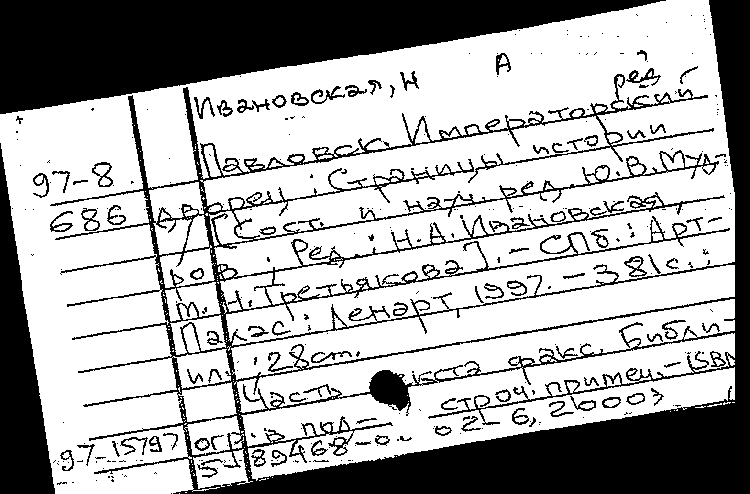 Ивановская, Н А
ред
Павловск. Императорский
97-8 дворец: Страницы истории
686 / [Сост. и науч. ред. Ю.В. Муд-
ров; Ред.: Н.А. Ивановская,
т. Н. Третьякова]. - СПб.: Арт-
Палас: Ленарт, 1997. - 381с.:
ил.; 28 cm.
Часть факс. Библи-
огр. в под- строч. примеч. - ISBN
97-15797 5-89468-0 02-6, 2000